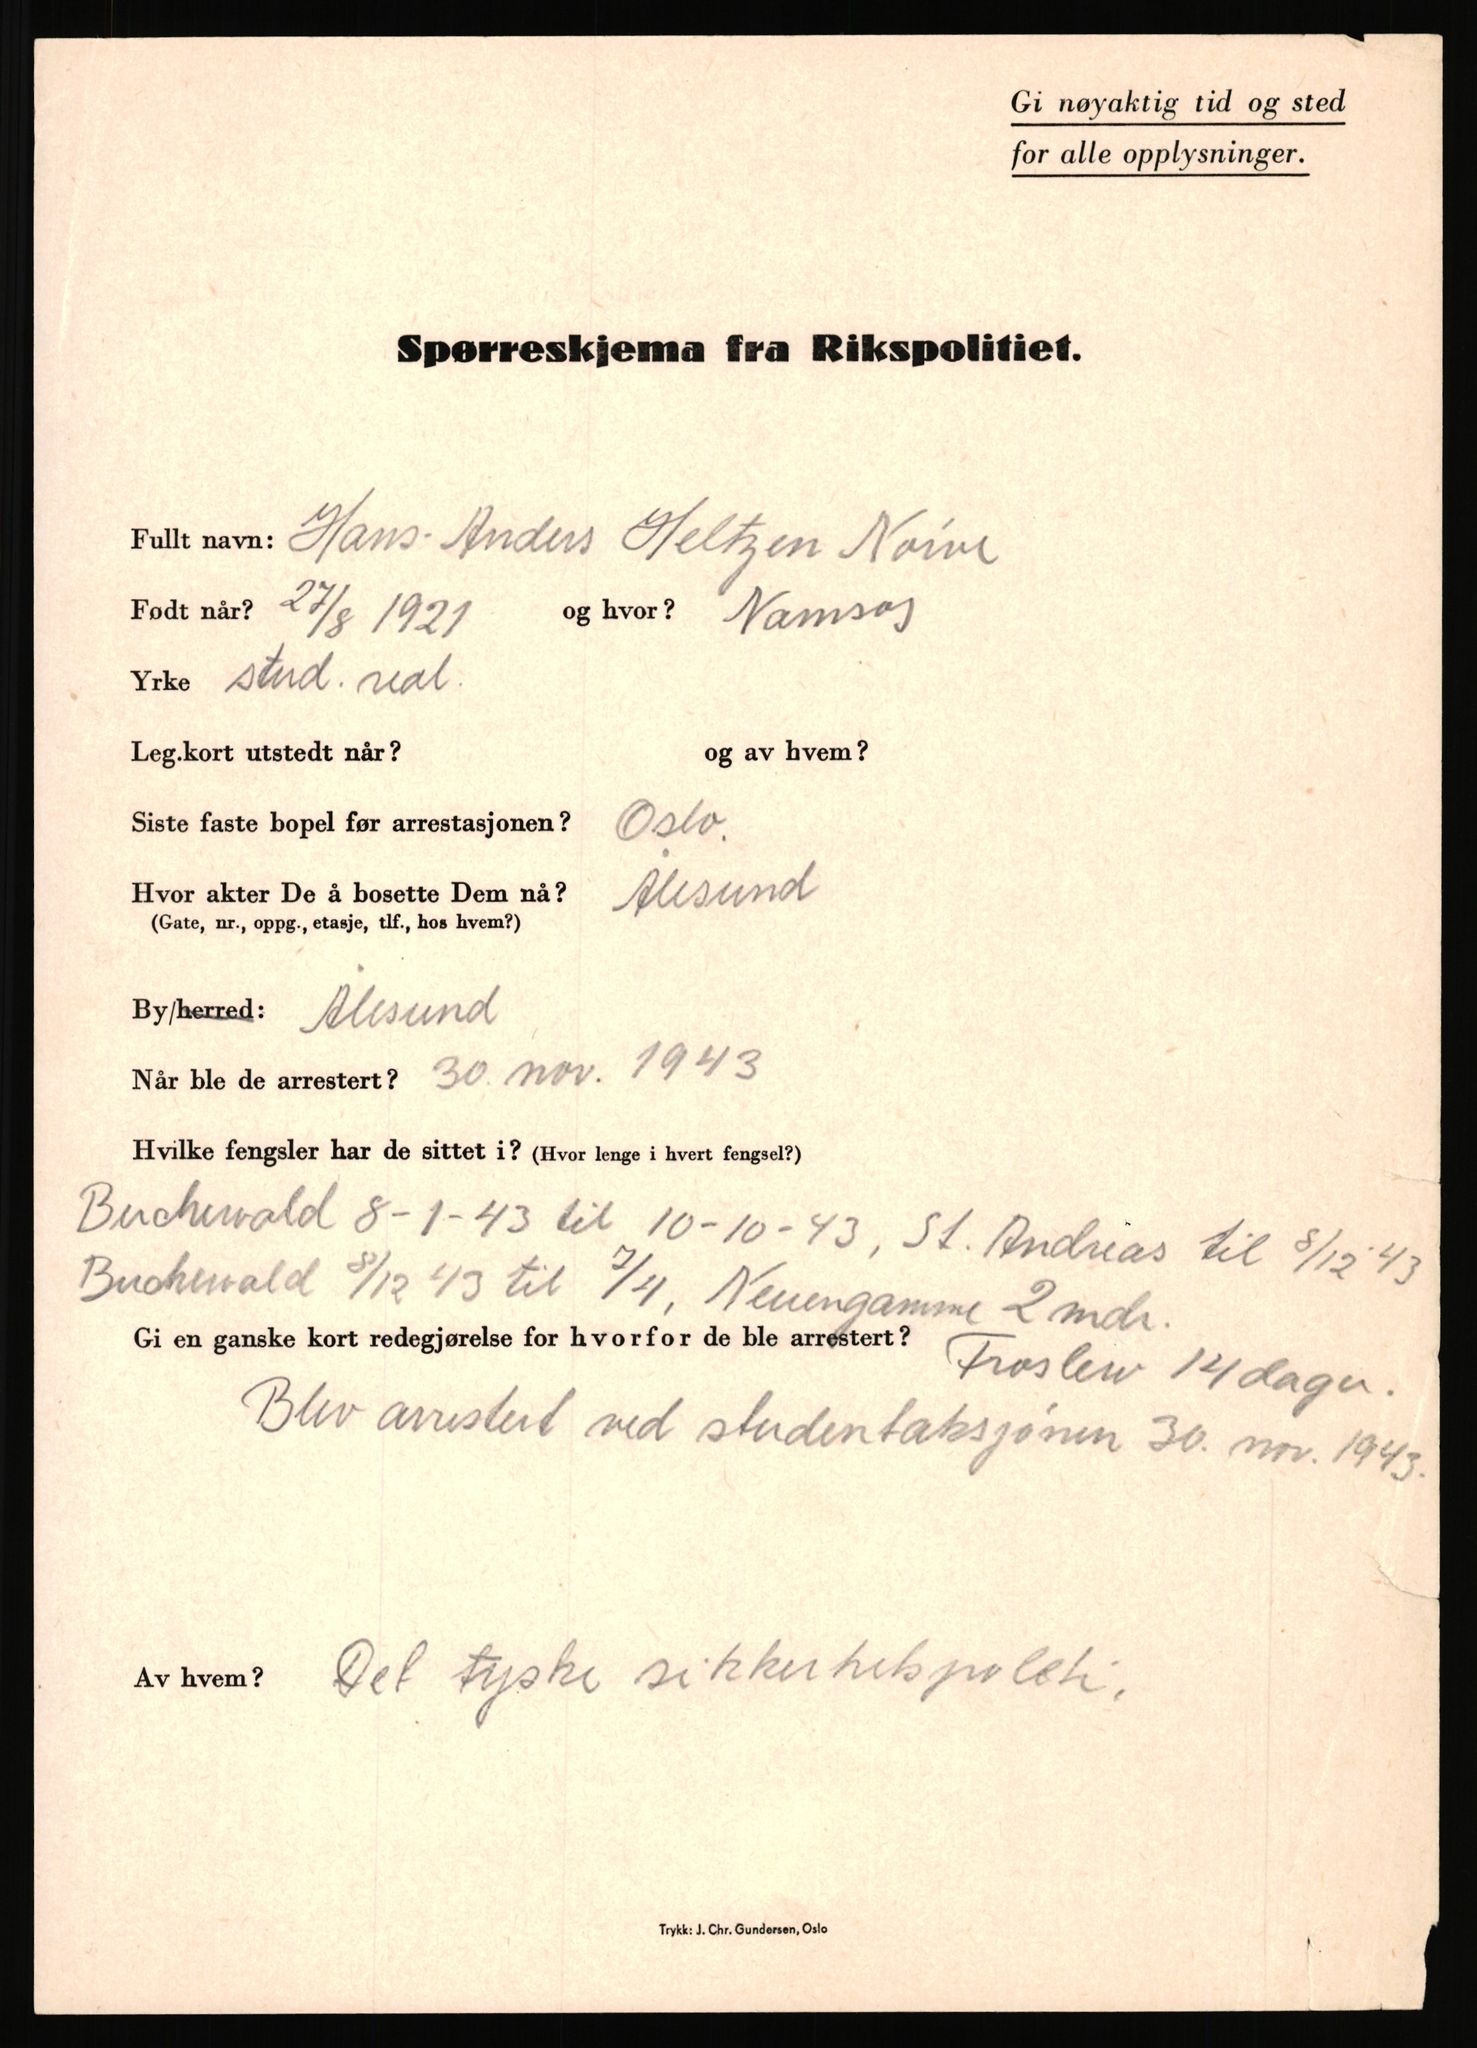 Gi nøyaktig tid og sted
for alle opplysninger.
Spørreskjema fra Rikspolitiet.
Fullt navn: Hans-Anders Heltzen Nørve
Født når? 27/8 1921 og hvor? Namsos
Yrke stud. real.
Leg.kort utstedt når? og av hvem?
Siste faste bopel før arrestasjonen? Oslo.
Hvor akter De å bosette Dem nå? Ålesund
(Gate, nr., oppg., etasje, tlf., hos hvem?)
By/herred: Ålesund
Når ble de arrestert? 30. nov. 1943
Hvilke fengsler har de sittet i? (Hvor lenge i hvert fengsel?)
Buchewald 8-1-43 til 10-10-43, St. Andreas til 8/12-43
Buchewald 8/12 43 til 7/4, Neuengamme 2 mdr.
Gi en ganske kort redegjørelse for hvorfor de ble arrestert? Frøslew 14 dager.
Blev arrestert ved studentaksjonen 30. nov. 1943.
Av hvem? Det tyske sikkerhetspoleti.
Trykk: J. Chr. Gundersen, Oslo